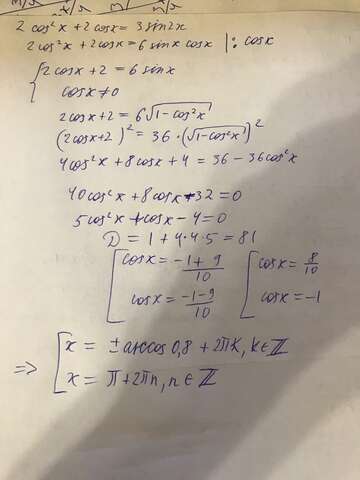 2 cos²x + 2 cosx = 3 sin2x
2 cos²x + 2cosx = 6 sinx cosx |: cosx
{ 2cosx + 2 = 6 sinx
cosx ≠ 0
2cosx + 2 = 6√(1-cos²x)
(2cosx+2)² = 36 · (√(1-cos²x))²
4cos²x + 8cosx + 4 = 36 - 36cos²x
40cos²x + 8cosx - 32 = 0
5cos²x + cosx - 4 = 0
D = 1 + 4·4·5 = 81
[ cosx = (-1+9)/10 [ cosx = 8/10
cosx = (-1-9)/10 cosx = -1
=> [ x = ± arccos 0,8 + 2πk, k∈ℤ
x = π + 2πn, n∈ℤ